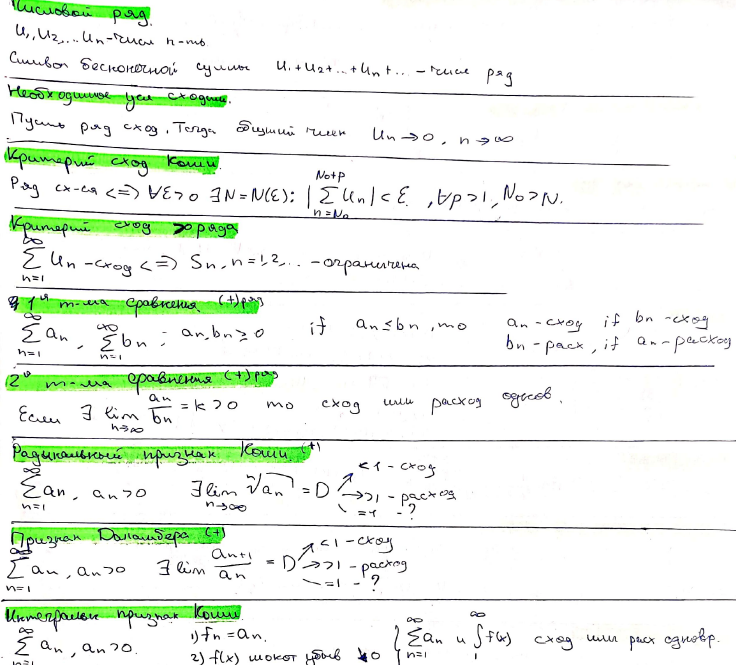 Числовой ряд.
U₁, U₂, ... Uₙ - числ п-ть
Символ бесконечной суммы U₁+U₂+...+Uₙ+... - числ ряд
Необходимое усл сходим.
Пусть ряд сход. Тогда общий член Uₙ → 0, n → ∞
Критерий сход Коши.
Ряд сх-ся <=> ∀ε>0 ∃N=N(ε): |∑_{n=N₀}^{N₀+p} Uₙ| < ε, ∀p>1, N₀>N.
Критерий сход >0 ряда
∑_{n=1}^{∞} Uₙ - сход <=> Sₙ, n=1,2,... - ограничена
1ая т-ма сравнения (+) ряд
∑_{n=1}^{∞} aₙ, ∑_{n=1}^{∞} bₙ ; aₙ, bₙ ≥ 0 if aₙ ≤ bₙ, то aₙ - сход if bₙ - сход
bₙ - расх, if aₙ - расход
2ая т-ма сравнения (+) ряд
Если ∃ lim_{n→∞} aₙ/bₙ = k > 0 то сход или расход однов.
Радикальный признак Коши (+)
∑_{n=1}^{∞} aₙ, aₙ>0 ∃ lim_{n→∞} ⁿ√aₙ = D <1 - сход
>1 - расход
=1 - ?
Признак Даламбера (+)
∑_{n=1}^{∞} aₙ, aₙ>0 ∃ lim aₙ₊₁/aₙ = D <1 - сход
>1 - расход
=1 - ?
Интегральн признак Коши.
∑_{n=1}^{∞} aₙ, aₙ>0. 1) fₙ = aₙ. { ∑_{n=1}^{∞} aₙ и ∫_{1}^{∞} f(x) сход или расх одновр.
2) f(x) монот убыв ↘0